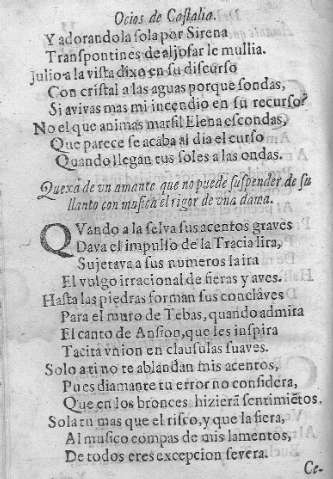 Ocios de Castalia.
Y adorandola sola por Sirena
Transpontines de aljofar le mullia.
Julio a la vista dixo en su discurso
Con cristal a las aguas porque sondas,
Si avivas mas mi incendio en su recurso?
No el que animas marfil Elena escondas,
Que parece se acaba al dia el curso
Quando llegan tus soles a las ondas.
Quexa de vn amante que no puede suspender de su
llanto con musica el rigor de vna dama.
QVando a la selva sus acentos graves
Dava el impulso de la Tracia lira,
Sujetava a sus numeros la ira
El vulgo irracional de fieras y aves.
Hasta las piedras forman sus conclaves
Para el muro de Tebas, quando admira
El canto de Ansion, que les inspira
Tacita vnion en clausulas suaves.
Solo a ti no te ablandan mis acentos,
Pues diamante tu error no considera,
Que en los bronces hizierã sentimiẽtos.
Sola tu mas que el risco, y que la fiera,
Al musico compas de mis lamentos,
De todos eres excepcion severa.
Ce-